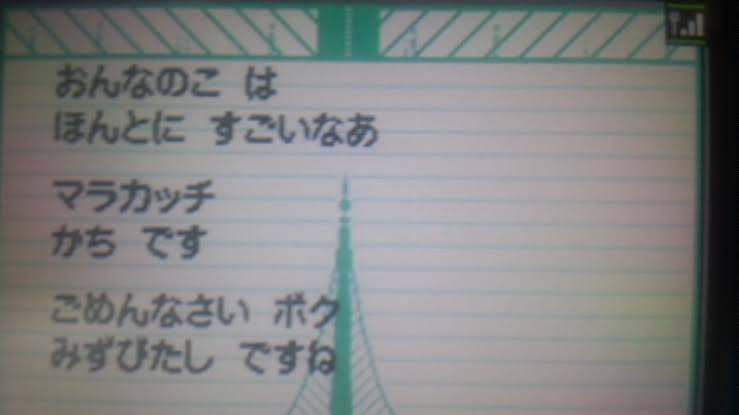 おんなのこ は
ほんとに すごいなあ
マラカッチ
かち です
ごめんなさい ボク
みずびたし ですね